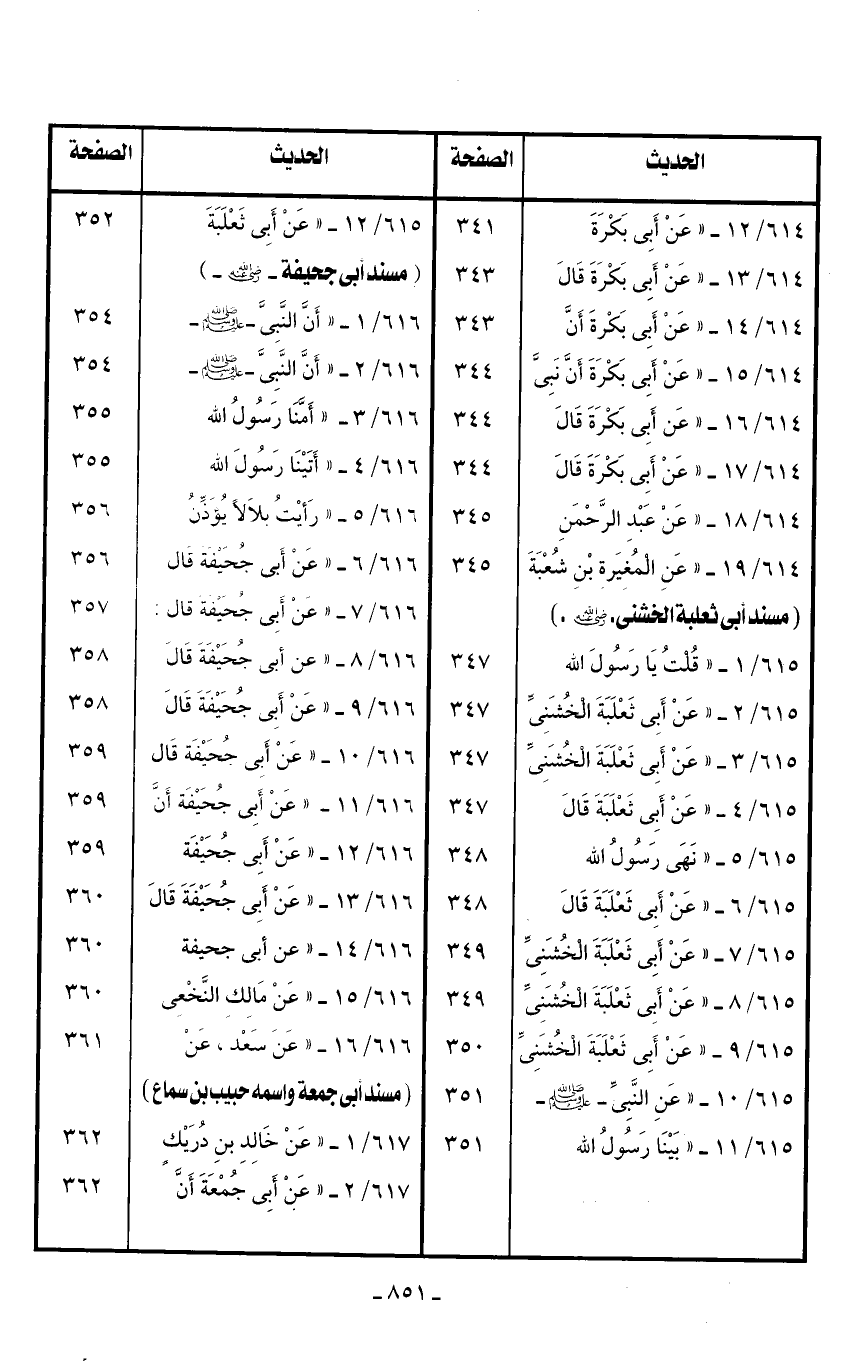 الحديث الصفحة
٦١٤/ ١٢ ـ « عَنْ أَبِى بَكْرَةَ ٣٤١
٦١٤/ ١٣ ـ « عَنْ أَبِى بَكْرَةَ قَالَ ٣٤٣
٦١٤/ ١٤ ـ « عَنْ أَبِى بَكْرةَ أَنَّ ٣٤٣
٦١٤/ ١٥ ـ « عَنْ أَبِى بَكْرَةَ أَنَّ نَبِىَّ ٣٤٤
٦١٤/ ١٦ ـ « عَن أَبِى بَكْرَةَ قَالَ ٣٤٤
٦١٤/ ١٧ ـ « عَن أَبِى بَكْرَةَ قَالَ ٣٤٤
٦١٤/ ١٨ ـ « عَنْ عَبْدِ الرَّحْمَنِ ٣٤٥
٦١٤/ ١٩ ـ « عَنِ الْمُغِيَرةِ بْنِ شُعْبَةَ ٣٤٥
( مسند أبى ثعلبة الخشنى. ﷺ .)
٦١٥/ ١ ـ « قُلْتُ يَا رَسُولَ الله ٣٤٧
٦١٥/ ٢ ـ « عَنْ أَبِى ثَعْلَبَةَ الْخُشَنِىِّ ٣٤٧
٦١٥/ ٣ ـ « عَنْ أَبِى ثَعْلَبَةَ الْخُشَنِىِّ ٣٤٧
٦١٥/ ٤ ـ « عَنْ أَبِى ثَعْلَبَةَ قَالَ ٣٤٧
٦١٥/ ٥ ـ « نَهَى رَسُولُ الله ٣٤٨
٦١٥/ ٦ ـ « عَنْ أَبِى ثَعْلَبَةَ قَالَ ٣٤٨
٦١٥/ ٧ ـ « عَنْ أَبِى ثَعْلَبَةَ الْخُشَنِىِّ ٣٤٩
٦١٥/ ٨ ـ « عَنْ أَبِى ثَعْلَبَةَ الْخُشَنِىِّ ٣٤٩
٦١٥/ ٩ ـ « عَنْ أَبِى ثَعْلَبَةَ الْخُشَنِىِّ ٣٥٠
٦١٥/ ١٠ ـ « عَنِ النَّبِىِّ ـ ﷺ ـ ٣٥١
٦١٥/ ١١ ـ « بَيْنَا رَسُولُ الله ٣٥١
الحديث الصفحة
٦١٥/ ١٢ ـ « عَنْ أَبِى ثَعْلَبَةَ ٣٥٢
( مسند أبى جحيفة ـ رضي الله عنه ـ )
٦١٦/ ١ ـ « أَنَّ النَّبِىَّ ـ ﷺ ـ ٣٥٤
٦١٦/ ٢ ـ « أَنَّ النَّبِىَّ ـ ﷺ ـ ٣٥٤
٦١٦/ ٣ ـ « أَمَّنَا رَسُولُ الله ٣٥٥
٦١٦/ ٤ ـ « أَتَيْنَا رَسُولَ الله ٣٥٥
٦١٦/ ٥ ـ « رَأَيْتُ بِلاَلاً يُؤَذِّنُ ٣٥٦
٦١٦/ ٦ ـ « عَنْ أَبِى جُحَيْفَةَ قَال ٣٥٦
٦١٦/ ٧ ـ « عَنْ أَبِى جُحَيْفَةَ قال : ٣٥٧
٦١٦/ ٨ ـ « عن أبِى جُحَيْفَةَ قَالَ ٣٥٨
٦١٦/ ٩ ـ « عَنْ أَبِى جُحَيْفَةَ قَالَ ٣٥٨
٦١٦/ ١٠ ـ « عَنْ أَبِى جُحَيْفَةَ قَال ٣٥٩
٦١٦/ ١١ ـ « عَنْ أَبِى جُحَيْفَةَ أَنَّ ٣٥٩
٦١٦/ ١٢ ـ « عَنْ أَبِى جُحَيْفَة ٣٥٩
٦١٦/ ١٣ ـ « عَنْ أَبِى جُحَيْفَةَ قَالَ ٣٦٠
٦١٦/ ١٤ ـ « عن أبى جحيفة ٣٦٠
٦١٦/ ١٥ ـ « عَنْ مَالِكِ النَّخْعِى ٣٦٠
٦١٦/ ١٦ ـ « عَنَ سَعْدِ ، عَنْ ٣٦١
( مسند أبى جمعة واسمه حبيب بن سماع )
٦١٧/ ١ ـ « عَنْ خَالِدِ بنِ دُرَيْكٍ ٣٦٢
٦١٧/ ٢ ـ « عَنْ أَبِى جُمُعَةَ أَنَّ ٣٦٢
ـ ٨٥١ ـ